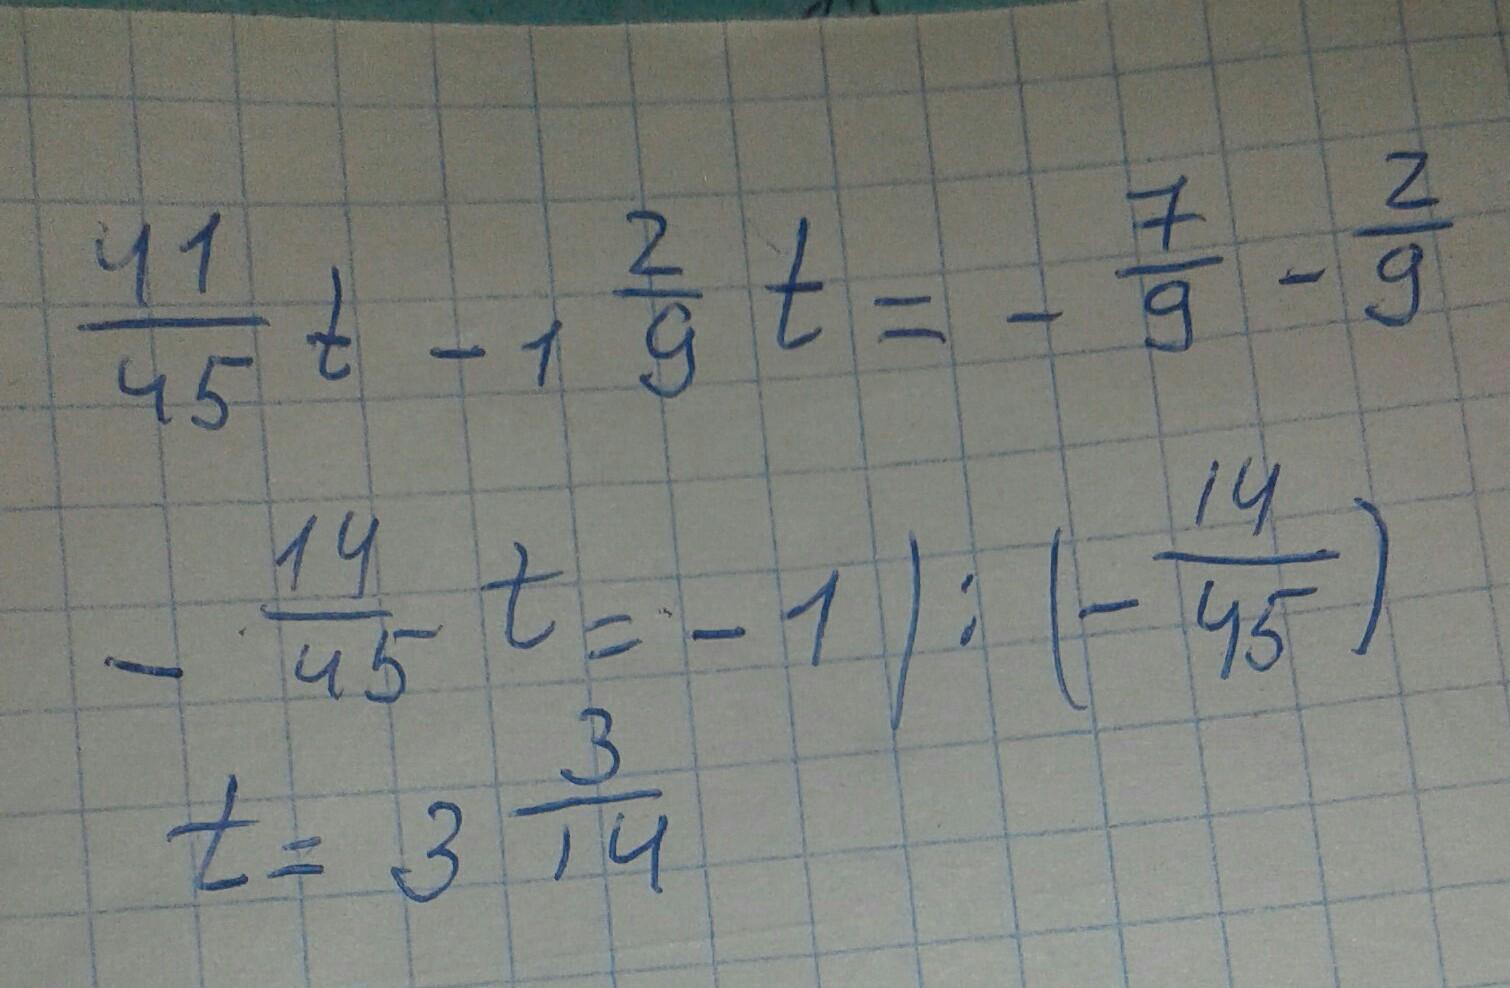 41/45 t - 1 2/9 t = - 7/9 - 2/9
- 14/45 t = - 1 ) : (- 14/45)
t = 3 3/14